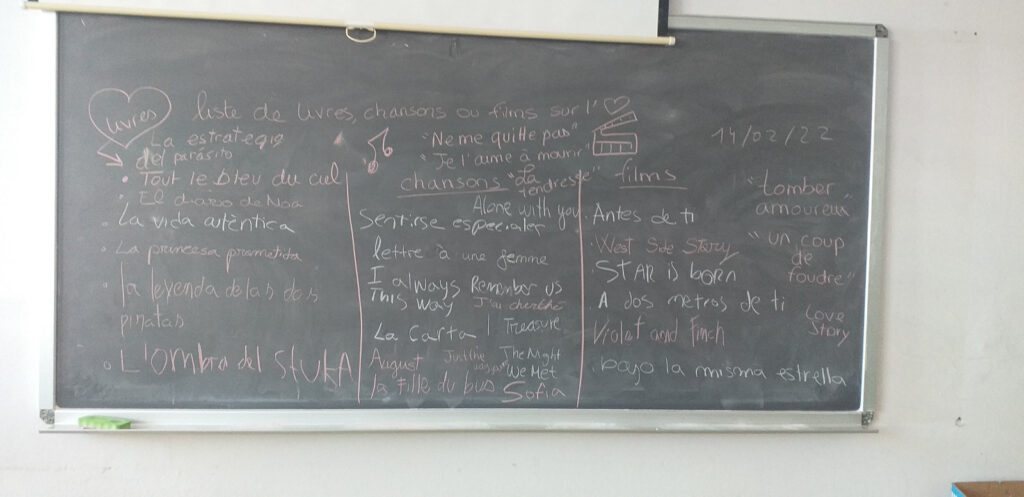 liste de livres, chansons ou films sur l'
14/02/22
livres
La estrategia
del parásito
Tout le bleu du ciel
El diario de Noa
La vida autèntica
La princesa prometida
la leyenda de las dos
piratas
L'ombra del Stuka
"Ne me quitte pas"
"Je l'aime à mourir"
chansons "La
tendresse"
Alone with you
Sentirse especiales
lettre à une femme
I always Remember us
This way J'ai cherché
La Carta I Treasure
August Just the
way you
The Night
We Met
la fille du bus Sofia
films
Antes de ti
West Side Story
STAR is born
A dos metros de ti
Violet and Finch
bajo la misma estrella
"tomber
amoureux"
"un coup
de
foudre"
Love
Story